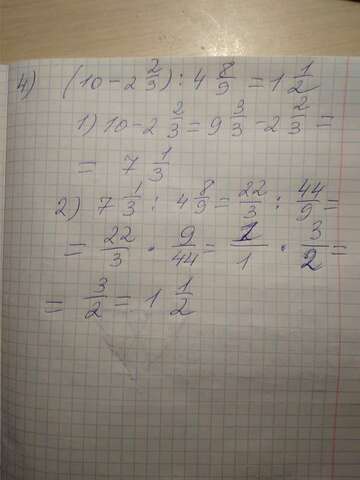 4) (10 - 2 2/3) : 4 8/9 = 1 1/2
1) 10 - 2 2/3 = 9 3/3 - 2 2/3 =
= 7 1/3
2) 7 1/3 : 4 8/9 = 22/3 : 44/9 =
= 22/3 · 9/44 = 1/1 · 3/2 =
= 3/2 = 1 1/2